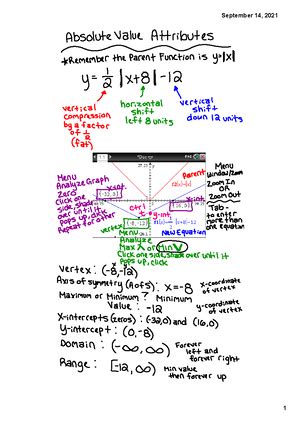 September 14, 2021
Absolute Value Attributes
*Remember the Parent Function is y=|x|
y = 1/2 |x+8| -12
vertical compression by a factor of 1/2 (fat)
horizontal shift left 8 units
vertical shift down 12 units
Menu
Analyze Graph
Zero
Click one
side, shade
over until it
pops up, click
Repeat for other
x-int
(-32,0)
ctrl
t
y-int.
vertex
(-8,-12)
x-int
(16,0)
Parent
New Equation
Menu
Window/Zoom
Zoom In
OR
Zoom Out
Tab -
to enter
more than
one equation
Menu
Analyze
Max Λ or Min V
Click one side, shade over until it
pops up, click
Vertex: (-8,-12)
Axis of symmetry (AofS): x=-8 x-coordinate of vertex
Maximum or Minimum? Minimum
Value: -12 y-coordinate of vertex
X-intercepts (zeros): (-32,0) and (16,0)
Y-intercept: (0,-8)
Domain: (-∞, ∞) Forever left and forever right
Range: [-12, ∞) Min value then forever up
1